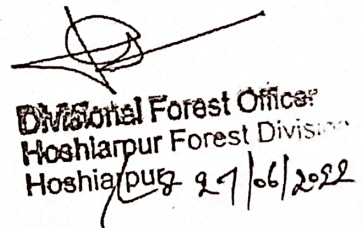 Divisional Forest Officer
Hoshiarpur Forest Division
Hoshiarpur 27/06/2022